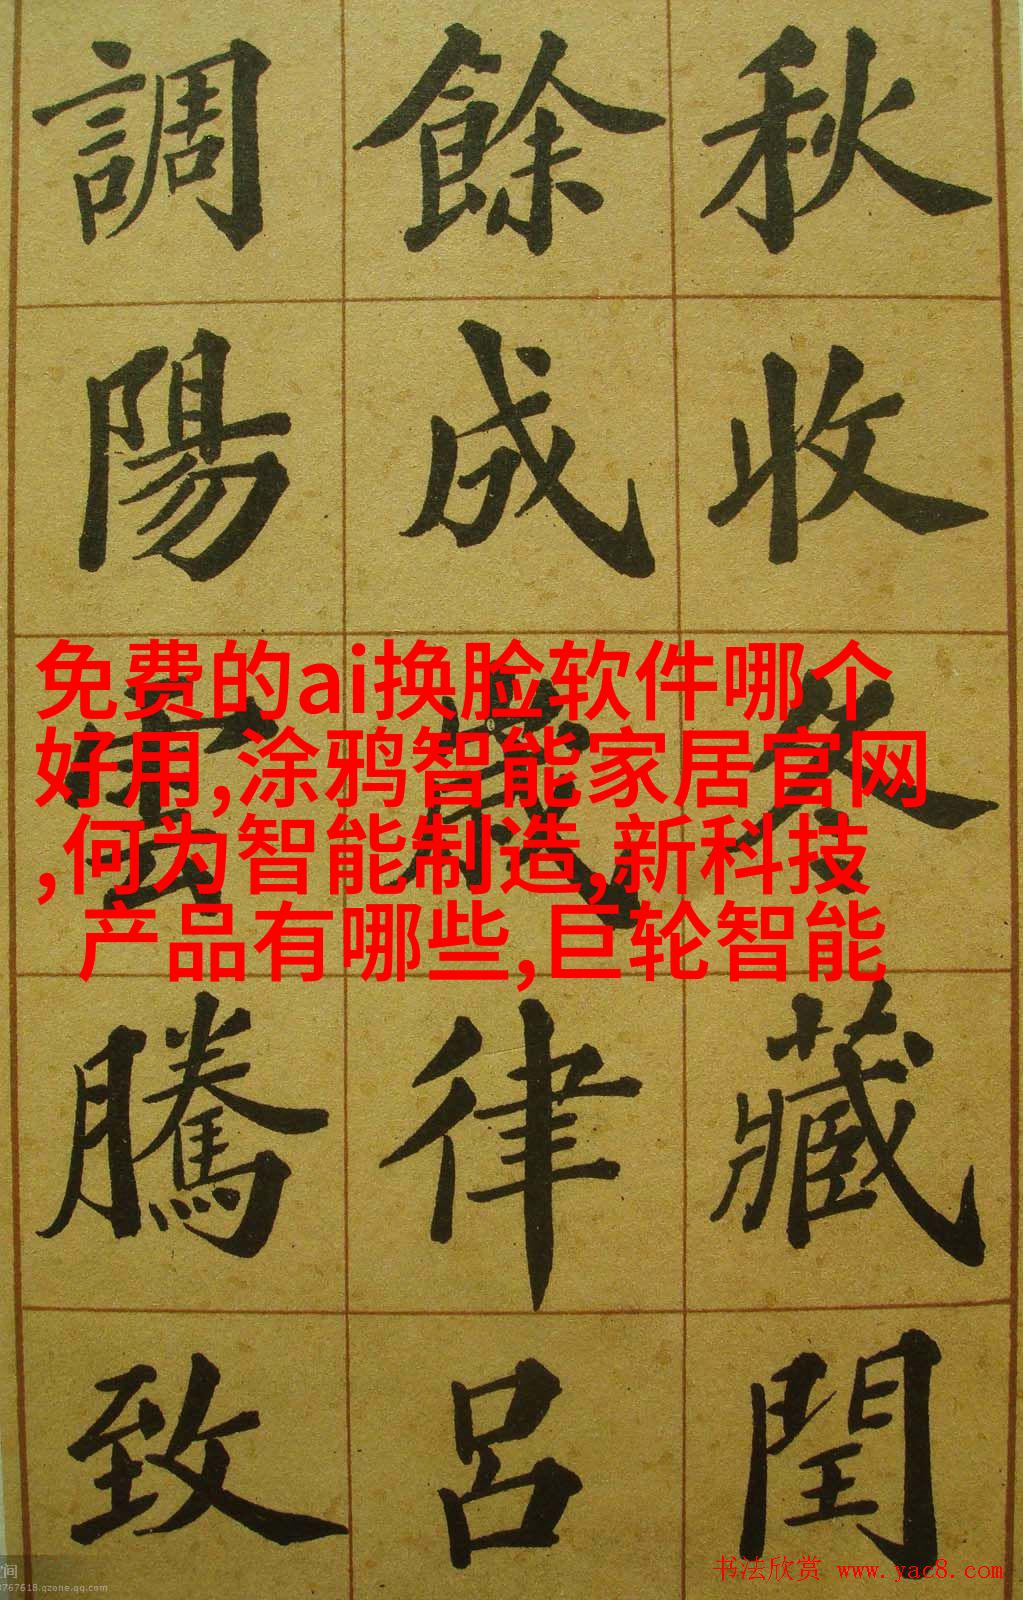 秋收冬藏閏
餘成歲律呂
調陽雲騰致
免费的ai换脸软件哪个
好用,涂鸦智能家居官网
,何为智能制造,新科技
产品有哪些,巨轮智能
书法欣赏 www.yac8.com
空间
767618.qzone.qq.com